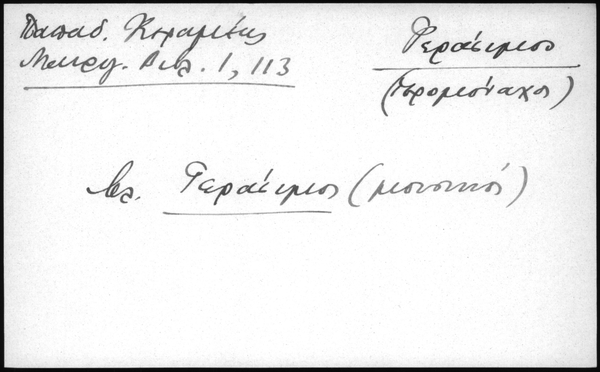 Παπαδ. Κεραμεύς
Μαυρογ. Βιβλ. 1, 113
Γεράσιμος
(ἱερομόναχος)
βλ. Γεράσιμος (μουσικός)